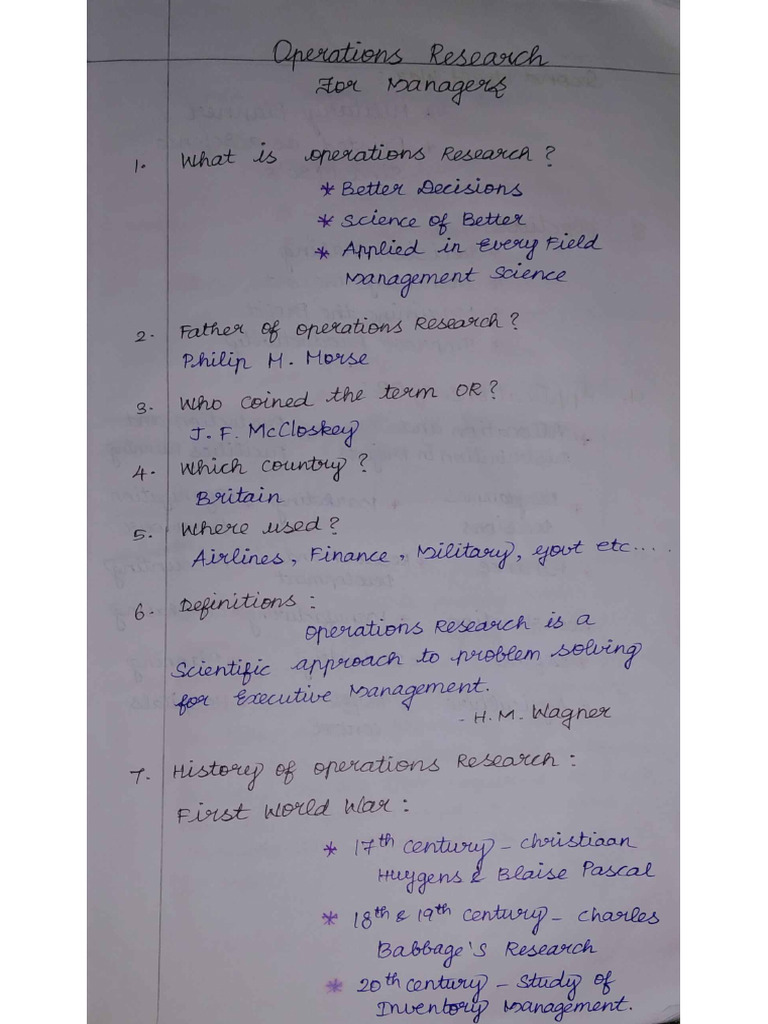 Operations Research
For Managers
1. What is operations Research?
* Better Decisions
* Science of Better
* Applied in Every Field
Management Science
2. Father of operations Research?
Philip M. Morse
3. Who coined the term OR?
J. F. McCloskey
4. Which country?
Britain
5. Where used?
Airlines, Finance, Military, govt etc....
6. Definitions:
Operations Research is a
Scientific approach to problem solving
for Executive Management.
- H.M. Wagner
7. History of operations Research:
First World War:
* 17th century - christiaan
Huygens & Blaise Pascal
* 18th & 19th century - charles
Babbage's Research
* 20th century - Study of
Inventory Management.